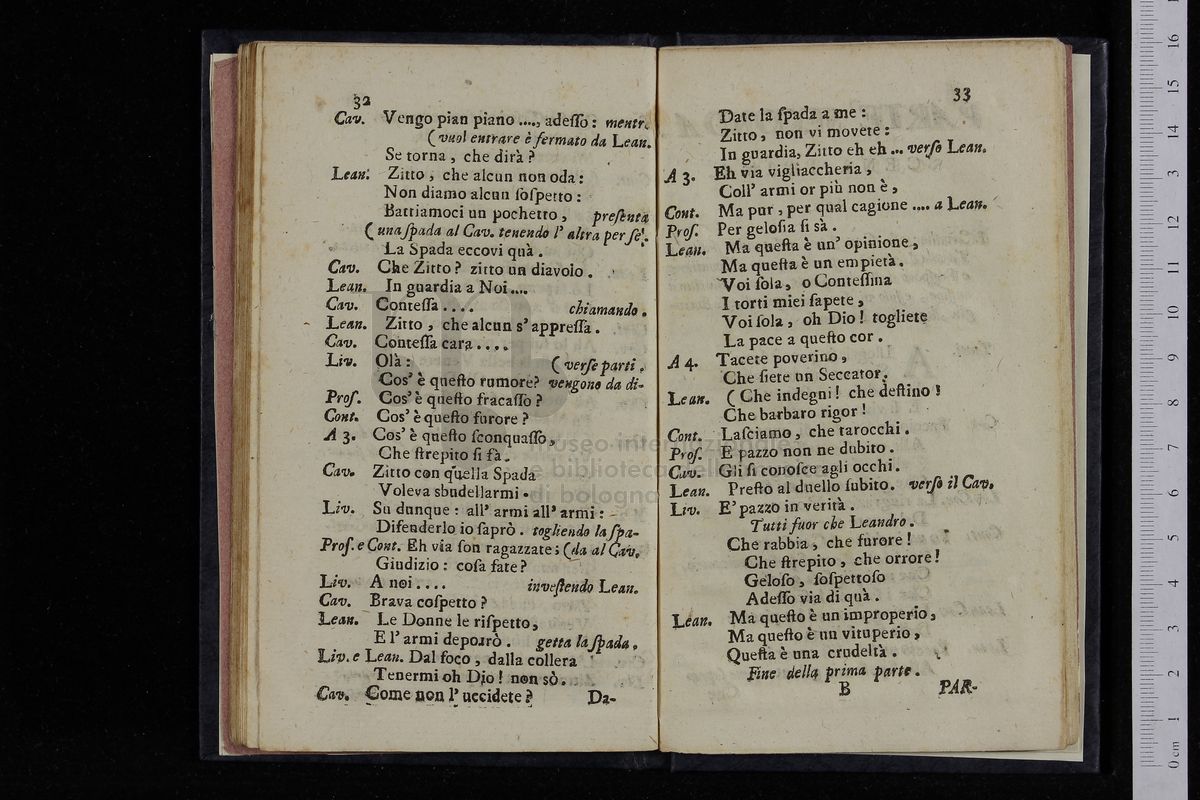 32
Cav. Vengo pian piano ...., adeſſo: mentre
(vuol entrare è fermato da Lean.
Se torna, che dirà?
Lean. Zitto, che alcun non oda:
Non diamo alcun ſoſpetto:
Battiamoci un pochetto, preſenta
(una ſpada al Cav. tenendo l' altra per ſe.
La Spada eccovi quà.
Cav. Che Zitto? zitto un diavolo.
Lean. In guardia a Noi....
Cav. Conteſſa.... chiamando.
Lean. Zitto, che alcun s' appreſſa.
Cav. Conteſſa cara....
Liv. Olà: (verſe parti.
Cos' è queſto rumore? vengono da di-
Prof. Cos' è queſto fracaſſo?
Cont. Cos' è queſto furore?
A 3. Cos' è queſto ſconquaſſo,
Che ſtrepito ſi fà.
Cav. Zitto con quella Spada
Voleva sbudellarmi.
Liv. Su dunque: all' armi all' armi:
Difenderlo io ſaprò. togliendo la ſpa-
Prof. e Cont. Eh via ſon ragazzate; (da al Cav.
Giudizio: coſa fate?
Liv. A noi.... inveſtendo Lean.
Cav. Brava coſpetto?
Lean. Le Donne le riſpetto,
E l' armi deporrò. getta la ſpada.
Liv. e Lean. Dal foco, dalla collera
Tenermi oh Dio! non sò.
Cav. Come non l' uccidete?
Da-
33
Date la ſpada a me:
Zitto, non vi movete:
In guardia, Zitto eh eh... verſo Lean.
A 3. Eh via vigliaccheria,
Coll' armi or più non è,
Cont. Ma pur, per qual cagione.... a Lean.
Prof. Per geloſia ſi sà.
Lean. Ma queſta è un' opinione,
Ma queſta è un empietà.
Voi ſola, o Conteſſina
I torti miei ſapete,
Voi ſola, oh Dio! togliete
La pace a queſto cor.
A 4. Tacete poverino,
Che ſiete un Seccator.
Lean. (Che indegni! che deſtino!
Che barbaro rigor!
Cont. Laſciamo, che tarocchi.
Prof. E pazzo non ne dubito.
Cav. Gli ſi conoſce agli occhi.
Lean. Preſto al duello ſubito. verſo il Cav.
Liv. E' pazzo in verità.
Tutti fuor che Leandro.
Che rabbia, che furore!
Che ſtrepito, che orrore!
Geloſo, ſoſpettoſo
Adeſſo via di quà.
Lean. Ma queſto è un improperio,
Ma queſto è un vituperio,
Queſta è una crudeltà.
Fine della prima parte.
B PAR-
museo internazionale
e biblioteca della
di bologna
0 cm 1 2 3 4 5 6 7 8 9 10 11 12 13 14 15 16